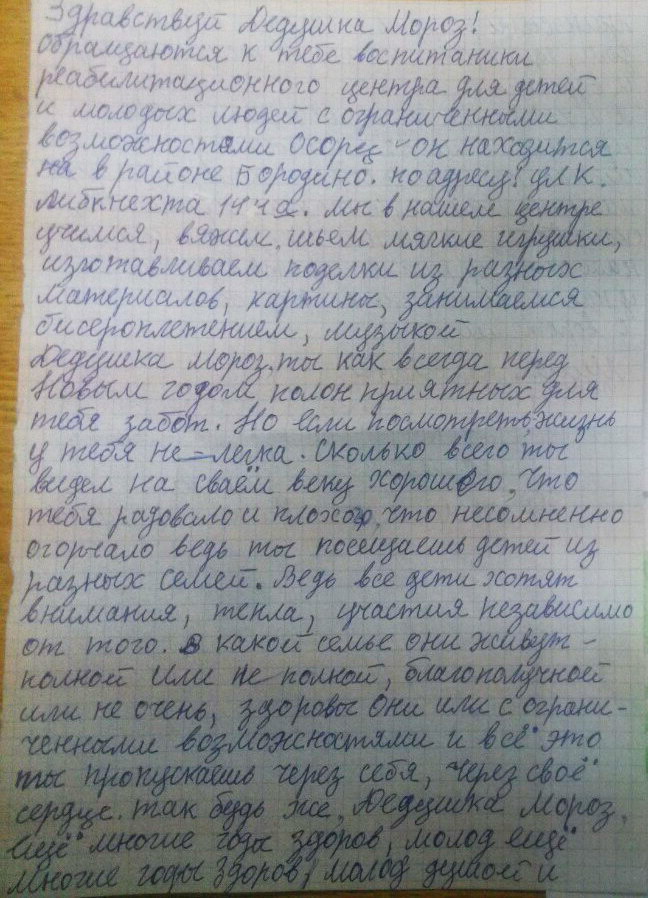 Здравствуй Дедушка Мороз!
обращаются к тебе воспитаники
реабилитационного центра для детей
и молодых людей с ограниченными
возможностями Осорец - он находится
на в районе Бородино. по адресу: ул К.
Либкнехта 144а. Мы в нашем центре
учимся, вяжем, шьем мягкие игрушки,
изготавливаем поделки из разных
материалов, картины, занимаемся
бисероплетением, музыкой
Дедушка Мороз, ты как всегда перед
Новым годом полон приятных для
тебя забот. Но если посмотреть, жизнь
у тебя не-легка. Сколько всего ты
видел на сваём веку хорошого, что
тебя радовало и плохого, что несомненно
огорчало ведь ты посещаешь детей из
разных семей. Ведь все дети хотят
внимания, тепла, участия независимо
от того. в какой семье они живут -
полной или не полной, благополучной
или не очень, здоровы они или с ограни-
ченными возможностями и всё это
ты пропускаешь через себя, через своё
сердце. так будь же, Дедушка Мороз,
ещё многие годы здоров, молод ещё
многие годы здоров, молод душой и